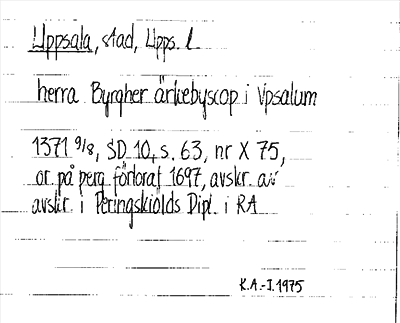 Uppsala, stad, Upps. l
herra Byrgher ärkebyscop i Vpsalum
1371 9/8, SD 10, s. 63, nr X 75,
or. på perg. förlorat 1697, avskr. av
avskr. i Peringskiölds Dipl. i RA
K.A.-I. 1975